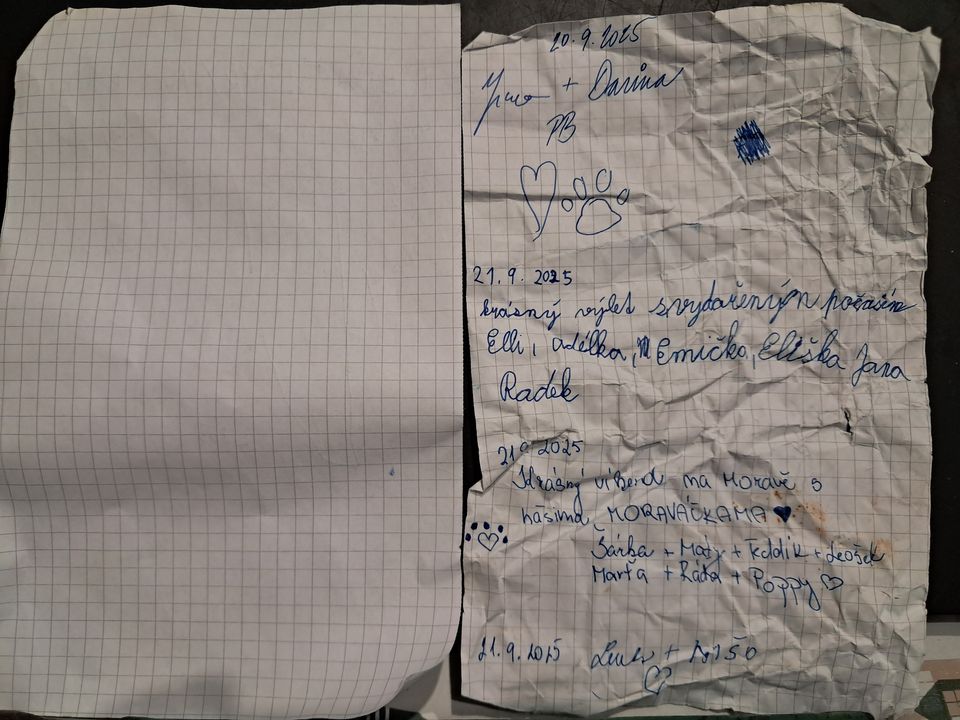 20.9.2025
+ Darina
PB
21.9. 2025
krásný výlet s vydařeným počasím
Elli, Adélka, Emička, Eliška Jana
Radek
21.9. 2025
Krásný víkend na Moravě s
našima MORAVÁČKAMA
Šárka + Maty + + Leošek
Marťa + Ráďa + Poppy
21.9.2025 +